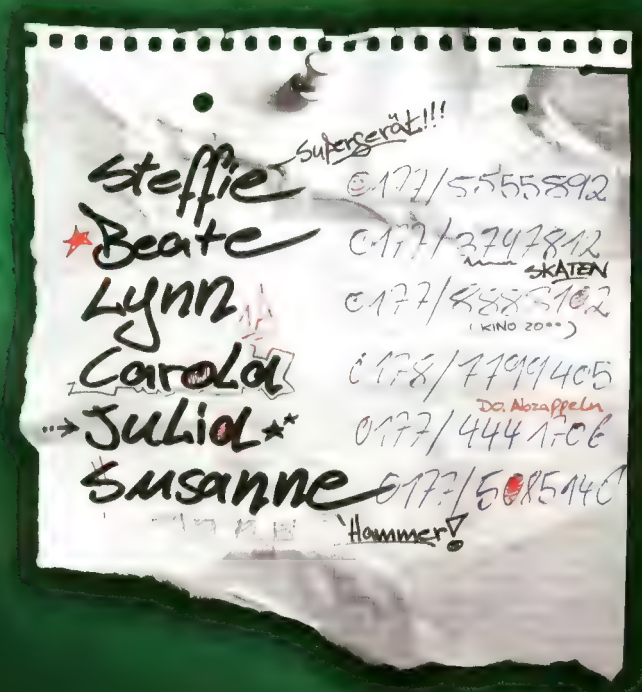 Supergerät!!!
Steffie 0177/5555892
Beate 0177/3747812
SKATEN
Lynn 0177/8888102
(KINO 20°°)
Carola 0178/7799405
Do. Abzappeln
Julia 0177/4441706
Susanne 0177/5085140
Hammer!